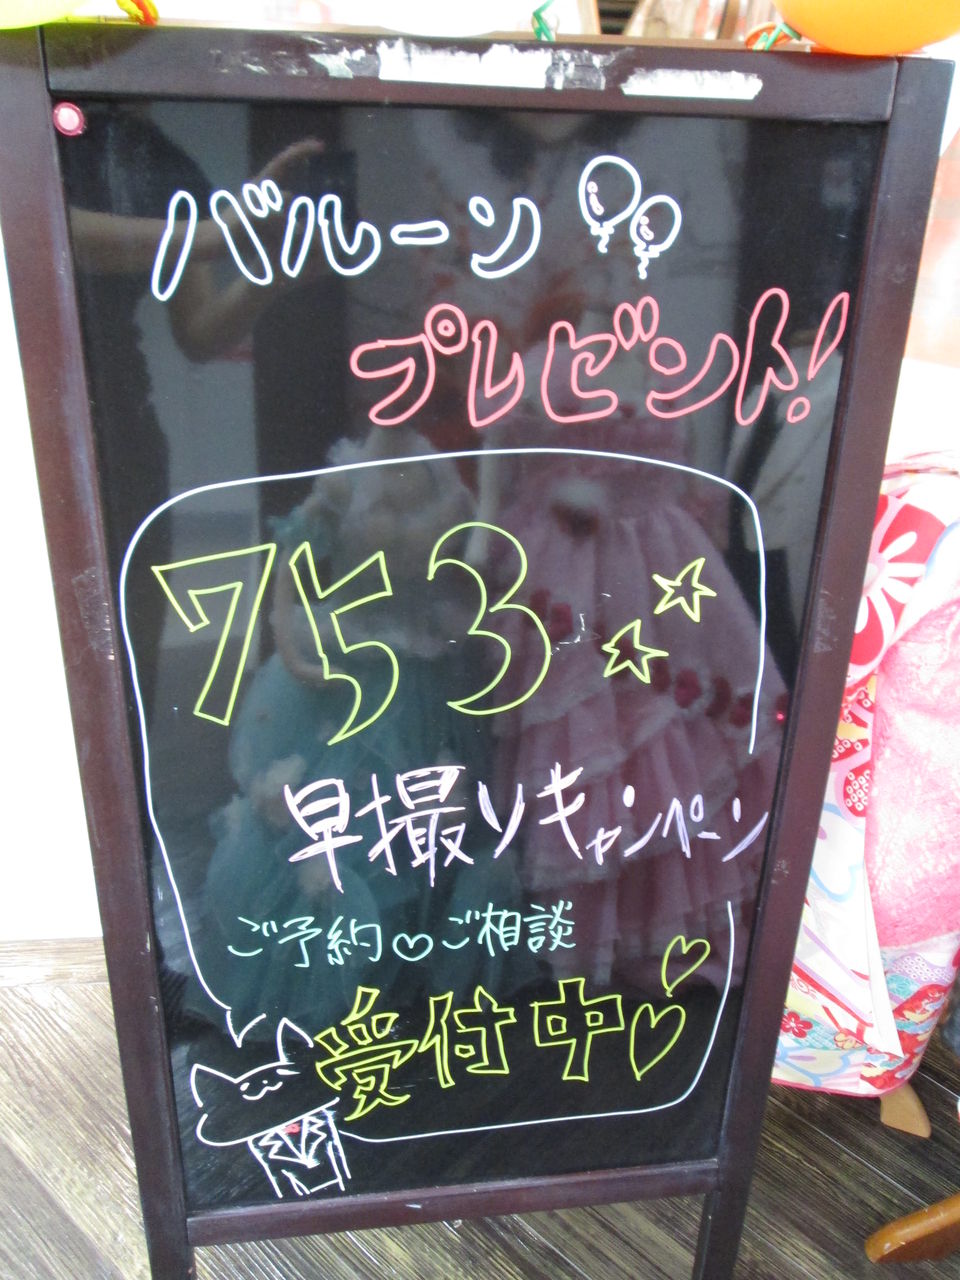 バルーン
プレゼント!
753
早撮りキャンペーン
ご予約♡ご相談
受付中